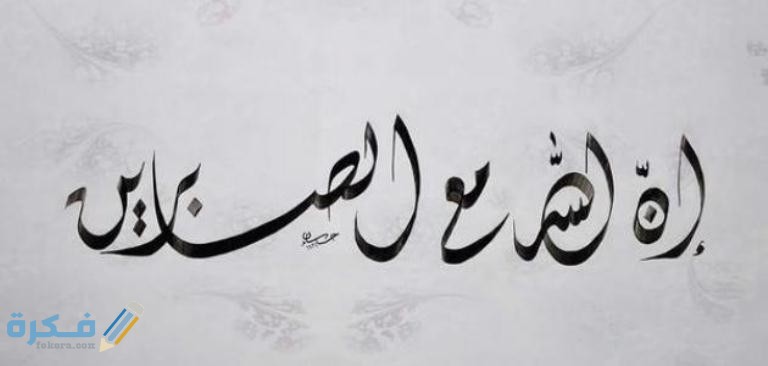 إنّ اللّه مع الصابرين
فكرة
fekera.com